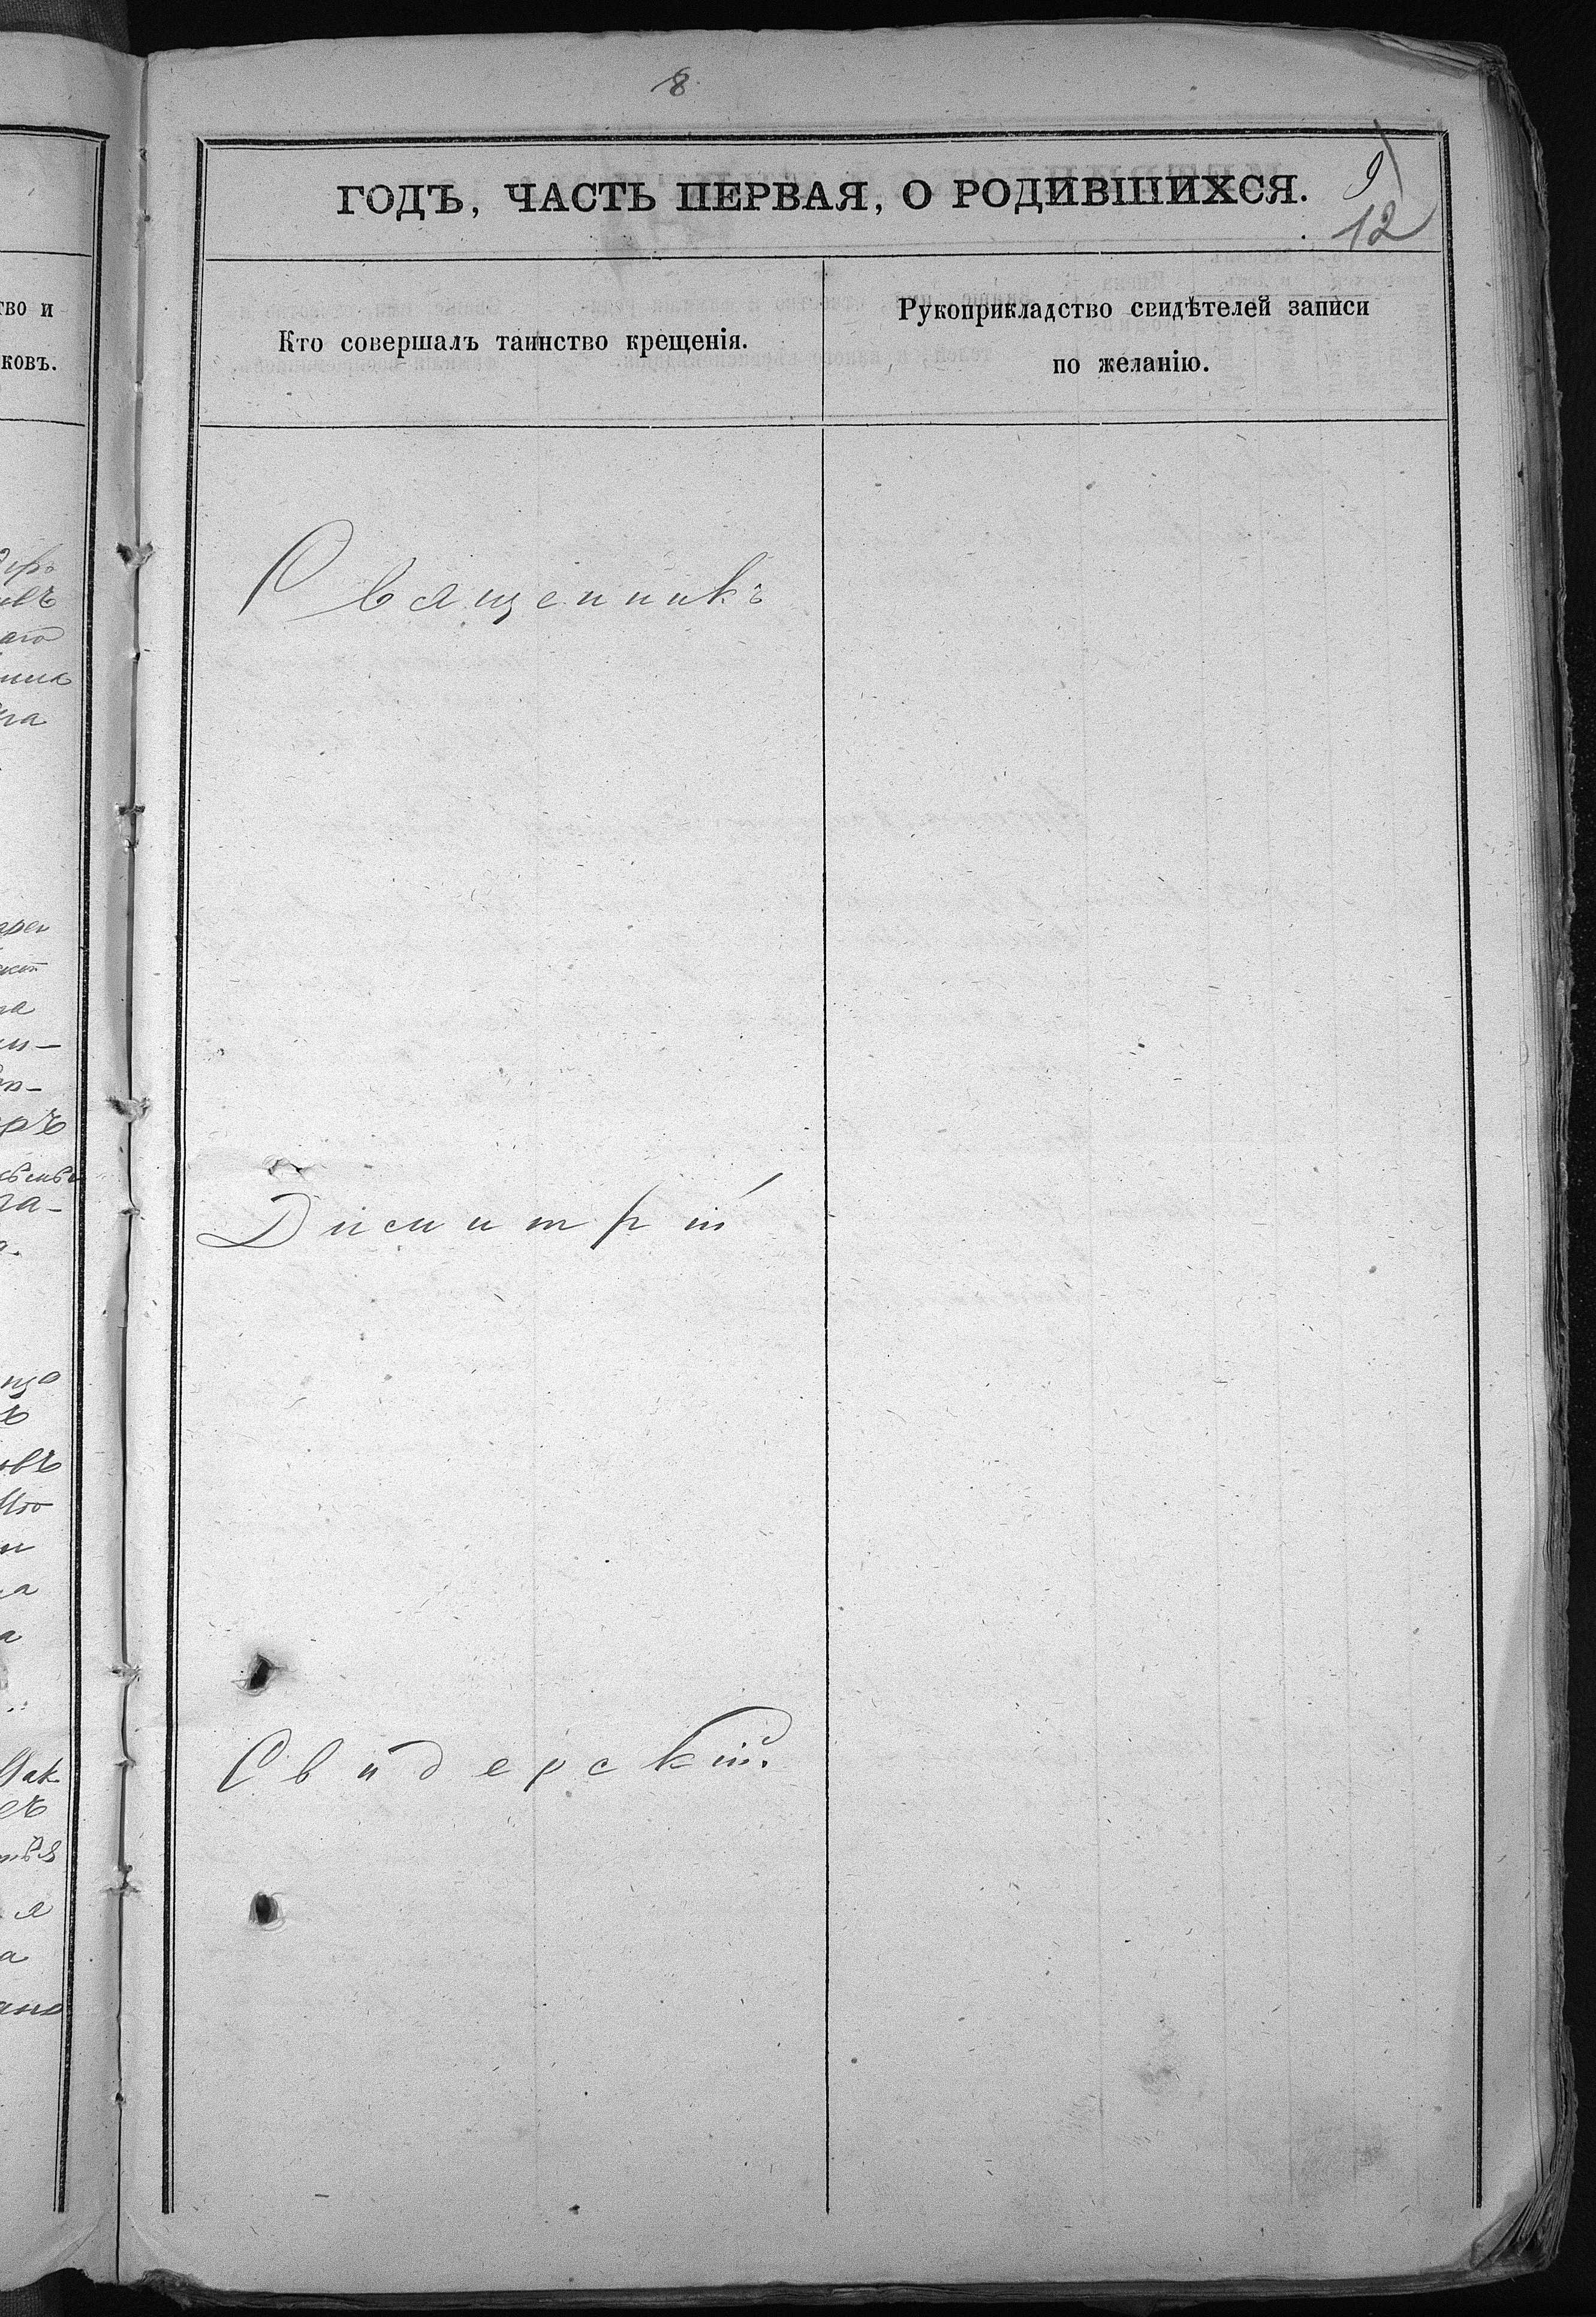 8
ГОДЪ, ЧАСТЬ ПЕРВАЯ, О РОДИВШИХСЯ.
9
12
тво и
ковъ.
Кто совершалъ таинство крещенія.
Рукоприкладство свидѣтелей записи
по желанію.
Священникъ
Димитрій
Свидерскій.